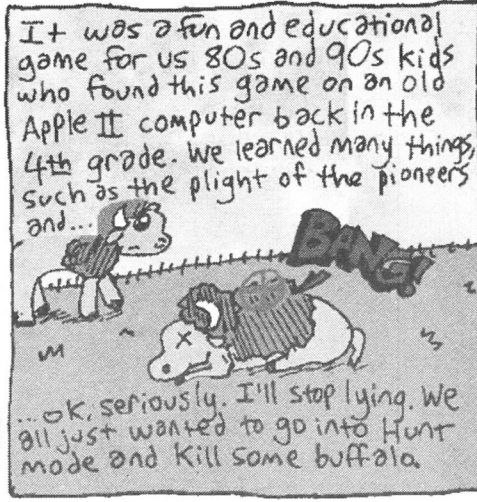 It was a fun and educational
game for us 80s and 90s kids
who found this game on an old
Apple II computer back in the
4th grade. We learned many things,
such as the plight of the pioneers
and...
BANG!
...ok, seriously. I'll stop lying. We
all just wanted to go into Hunt
mode and kill some buffalo.